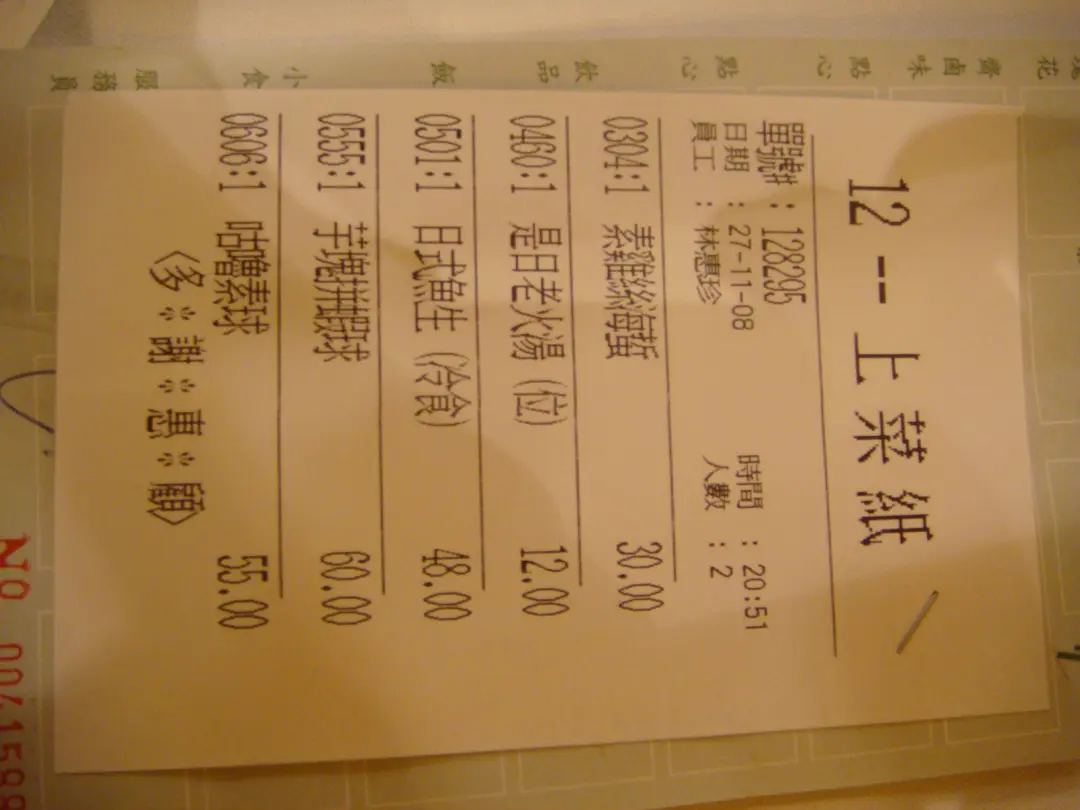 12 -- 上菜紙
單號# : 128295
日期 : 27-11-08 時間 : 20:51
員工 : 林惠珍 人數 : 2
0304:1 素雞絲海蜇 30.00
0460:1 是日老火湯 (位) 12.00
0501:1 日式魚生 (冷食) 48.00
0555:1 芋塊拼蝦球 60.00
0606:1 咕嚕素球 55.00
〈多※謝※惠※顧〉
花
齋鹵味
點心
點心
飲品
飯
小食
服務員
No 0041588